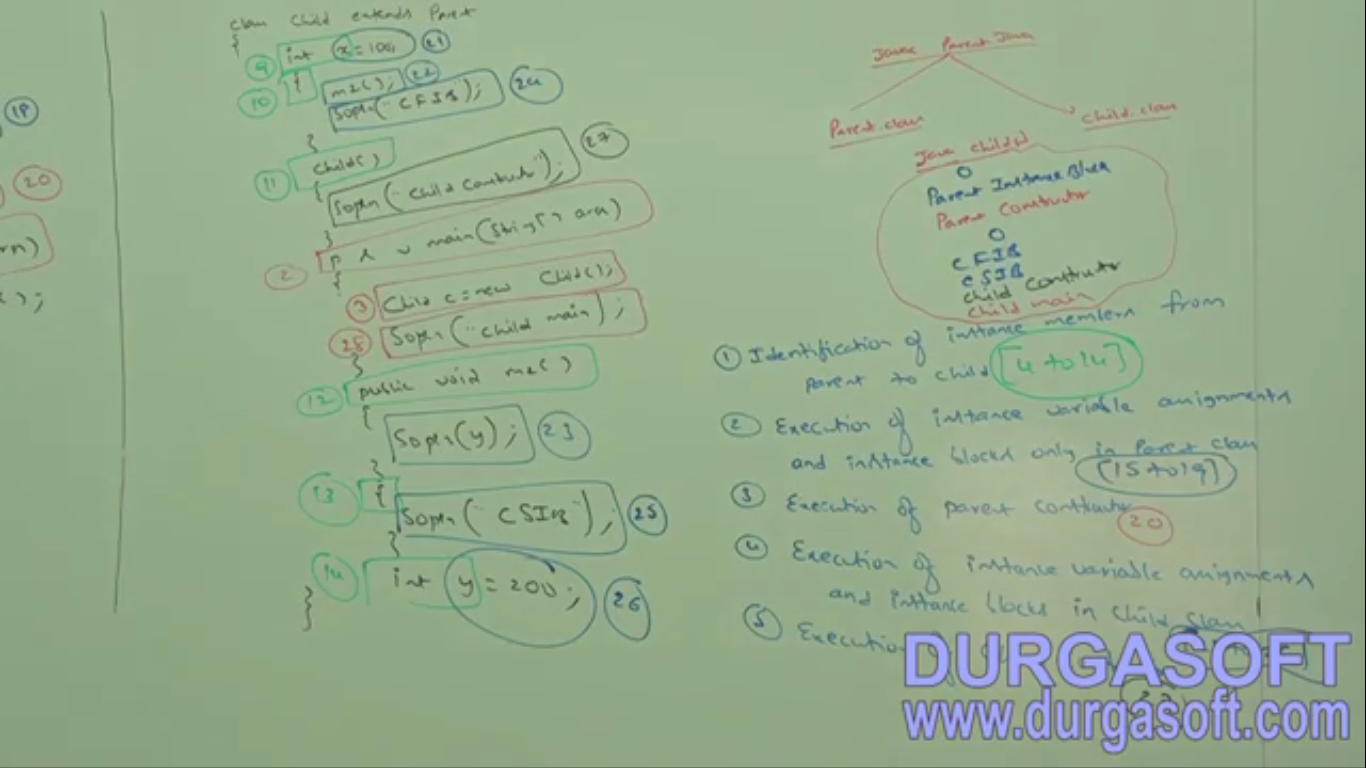 18
20
);
class Child extends Parent
{
9 int x = 100; 21
10 { m2(); 22
Sopln("CFIB"); 24
}
11 Child()
{
Sopln("Child Constructor"); 27
}
2 p s v main(String[] args)
{
3 Child c = new Child();
28 Sopln("Child main");
}
12 public void m2()
{
Sopln(y); 23
}
13 {
Sopln("CSIB"); 25
}
14 int y = 200; 26
}
Javac Parent.Java
Parent.class
Child.class
Java Child↵
0
Parent Instance Block
Parent Constructor
0
CFIB
CSIB
Child Constructor
Child main
① Identification of instance members from
parent to child [4 to 14]
② Execution of instance variable assignments
and instance blocks only in Parent class
[15 to 19]
③ Execution of parent constructor
20
④ Execution of instance variable assignments
and instance blocks in child class
⑤ Execution
DURGASOFT
www.durgasoft.com